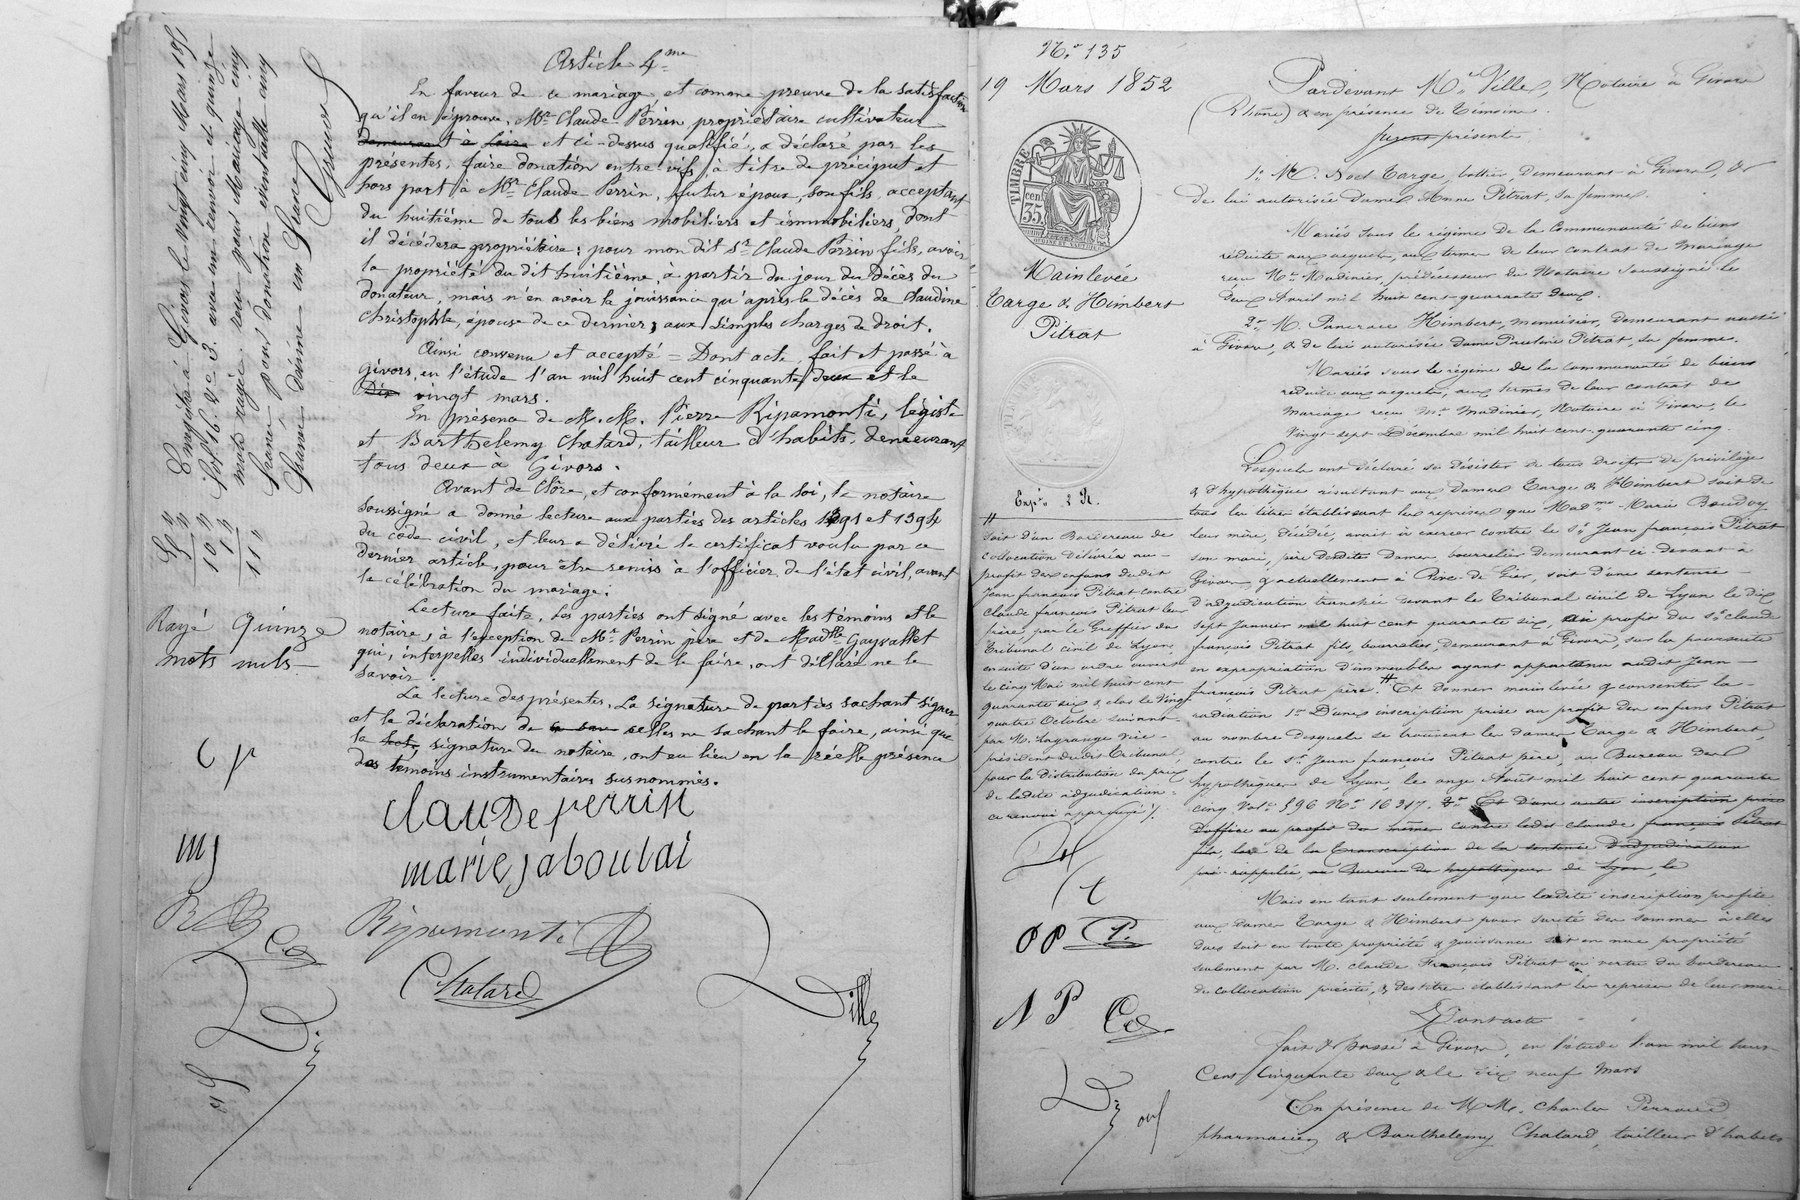 Article 4me
En faveur de ce mariage et comme preuve de la satisfaction
qu'il en éprouve, Mr Claude Perrin propriétaire cultivateur
demeurant à Loire et ci-dessus qualifié, a déclaré par les
présentes, faire donation entre vifs, à titre de préciput et
hors part à Mr Claude Perrin, futur époux, son fils, acceptant
du huitième de tous les biens mobiliers et immobiliers, dont
il décédera propriétaire; pour mon dit Sr Claude Perrin fils, avoir
la propriété du dit huitième, a partir du jour du décès du
donateur, mais n'en avoir la jouissance qu'après le décès de Claudine
Christophle, épouse de ce dernier; aux simples charges de droit.
Ainsi convenu et accepté = Dont acte, fait et passé à
givors, en l'étude l'an mil huit cent cinquante deux et le
Dix vingt mars.
En présence de M.M. Pierre Ripamonti, légiste
et Barthelemy Chatard, tailleur d'habits, demeurant
tous deux à Givors.
Avant de Clôre, et conformément à la loi, le notaire
soussigné a donné lecture aux parties des articles 1391 et 1394
du code civil, et leur a délivré le certificat voulu par ce
dernier article, pour être remis à l'officier de l'état civil, avant
la célébration du mariage.
Lecture faite, les parties ont signé avec les témoins et le
notaire, à l'exception de Mr Perrin père et de Madlle Gayvallet
qui, interpellés individuellement de le faire, ont déclaré ne le
savoir.
La lecture des présentes, la signature de parties sachant signer
et la déclaration de celles ne sachant le faire, ainsi que
la signature du notaire, ont eu lieu en la réelle présence
des témoins instrumentaires susnommés.
claude perrin
marie jaboulai
Ripamonti
Chatard
Ville
Enregistré à Givors le vingt cinq Mars 185
fol. 16. Vo Co 3. avec un renvoi et quinze
mots rayés. reçu pour Mariage cinq
francs pour donation éventuelle cinq
francs décime un franc
5 "
5 "
10 "
1 "
11 "
Rayé quinze
mots nuls
C p
mj
R
Ce
No 135
19 Mars 1852
TIMBRE
35 cen
Mainlevée
Targe & Himbert
Pitrat
Expon 2 R.
soit d'un Bordereau de
collocation délivré au
profit des enfans du dit
Jean françois Pitrat contre
Claude françois Pitrat leur
frère, par le Greffier du
Tribunal civil de Lyon,
ensuite d'un ordre ouvert
le cinq Mai mil huit cent
quarante six & clos le vingt
quatre Octobre suivant
par M. Lagrange vice-
président du dit Tribunal,
pour la distribution du prix
de ladite adjudication.
ce renvoi approuvé /.
P P P.
N P Ce
Pardevant Me Ville, Notaire à Givors
(Rhône) & en présence de Témoins
furent présents
1o M. Noel Targe, bottier, demeurant à Givors, &
de lui autorisée Dame Anne Pitrat, sa femme.
Mariés sous le régime de la Communauté de biens
réduite aux acquets, aux termes de leur contrat de Mariage
reçu Me Madinier, prédécesseur du Notaire soussigné le
deux Avril mil huit cent quarante deux.
2o M. Pancrace Himbert, menuisier, demeurant aussi
à Givors, & de lui autorisée Dame Pauline Pitrat, sa femme.
Mariés sous le régime de la communauté de biens
réduite aux acquets, aux termes de leur contrat de
mariage reçu Me Madinier, Notaire à Givors, le
vingt-sept Décembre mil huit cent quarante cinq.
Lesquels ont déclaré se désister de tous droits de privilège
& d'hypothèque résultant aux dames Targe & Himbert soit de
tous les titres établissant les reprises que Madme Marie Boudoy
leur mère, décédée, avait à exercer contre le Sr Jean françois Pitrat
son mari, père desdites Dames, bourrelier demeurant ci-devant à
Givors & actuellement à Rive-de-Gier, soit d'une sentence
d'adjudication tranchée devant le Tribunal civil de Lyon le dix
sept Janvier mil huit cent quarante six, au profit du Sr Claude
françois Pitrat fils, bourrelier, demeurant à Givors, sur la poursuite
en expropriation d'immeubles ayant appartenu audit Jean
françois Pitrat père. # Et donner mainlevée & consentir la
radiation 1o D'une inscription prise au profit des enfans Pitrat
au nombre desquels se trouvent les dames Targe & Himbert,
contre le Sr Jean françois Pitrat père, au Bureau des
hypothèques de Lyon, le onze Août mil huit cent quarante
cinq Vol. 596 No 16317. 2o Et d'une autre inscription prise
d'office au profit des mêmes contre ledit Claude françois Pitrat
fils, lors de la transcription de la sentence d'adjudication
pré-rappelée, au Bureau des hypothèques de Lyon, le
Mais en tant seulement que ladite inscription profite
aux dames Targe & Himbert pour sureté des sommes à elles
dues soit en toute propriété & jouissance soit en nue propriété
seulement par M. Claude François Pitrat en vertu du bordereau
de collocation précité, & des titres établissant les reprises de leur mère
Dont acte
fait & passé à Givors, en l'étude l'an mil huit
Cent Cinquante deux & le dix neuf Mars
En présence de M.M. Charles Perroud
pharmacien & Barthelemy Chatard, tailleur d'habits